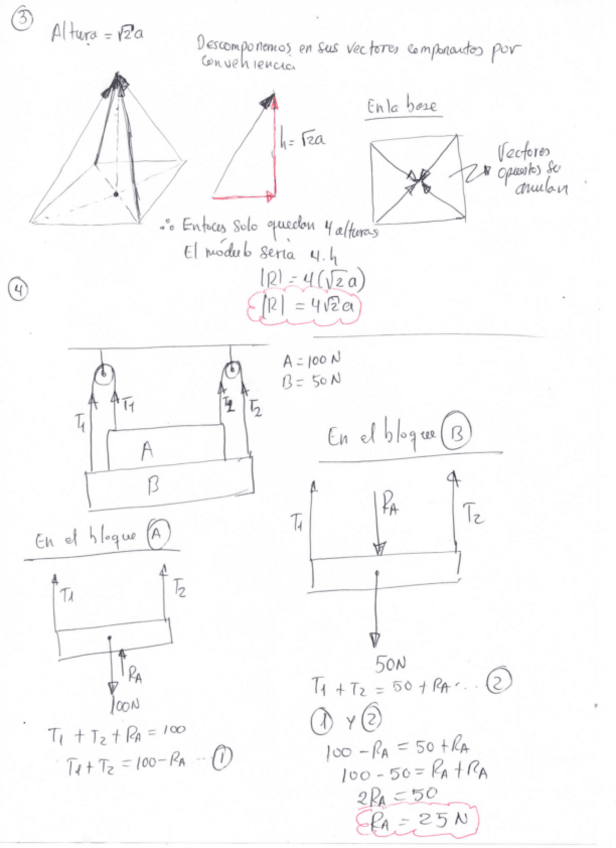 ③
Altura = √2a
Descomponemos en sus vectores componentes por
conveniencia
h = √2a
En la base
Vectores
opuestos se
anulan
∴ Entoces solo quedan 4 alturas
El módulo sería 4.h
|R| = 4(√2a)
|R| = 4√2a
④
A = 100 N
B = 50 N
T1 T1 T2 T2
A
B
En el bloque Ⓐ
T1
T2
RA
100N
T1 + T2 + RA = 100
T1 + T2 = 100 - RA ... ①
En el bloque Ⓑ
T1
RA
T2
50N
T1 + T2 = 50 + RA ... ②
① y ②
100 - RA = 50 + RA
100 - 50 = RA + RA
2RA = 50
RA = 25 N